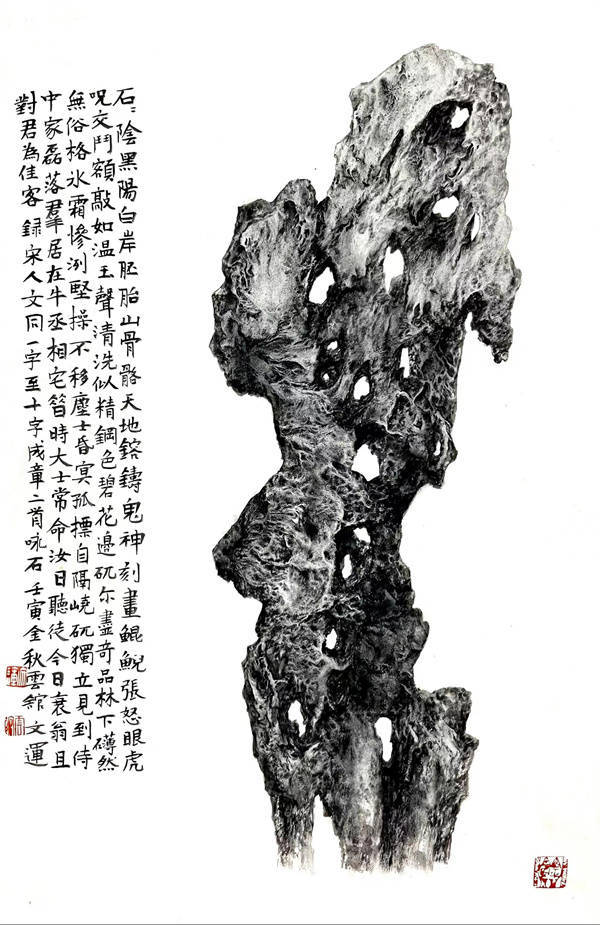 石〻陰黑陽白岸胚胎山骨骼天地鎔鑄鬼神刻畫鯤鯢張怒眼虎
呪交鬥額敲如温玉聲清洗似精鋼色碧花邊矹尔盡奇品林下礴然
無俗格氷霜慘洌堅操不移塵士昏冥孤摽自隔嶢矹獨立見到侍
中家磊落羣居在牛丞相宅昝時大士常命汝日聽徒今日衰翁且
對君為佳客 録宋人文同一字至十字成章二首咏石壬寅金秋雲館文運